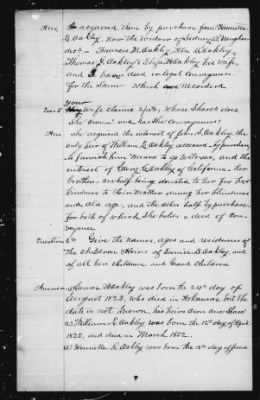 Ans I acquired them by purchase from Henrietta
E. Oakley, now the widow of Sidney
dict - Francis M. Oakley, Ada Oakley,
Thomas J. Oakley & Eliza Oakley his wife,
and I have deed or legal conveyance
for the same which are recorded
Ques 5 your wife claims 2 pts, whose shares does
she own & has she conveyances
Ans she acquired the interest of John L. Oakley, the
only heir of William L. Oakley deceased by
to furnish him means to go to Texas, and the
interest of Oakley of California her
brother one half being donation to her for her
kindness to their Mother during her blindness
and old age, and the other half by purchase
for both of which she holds a deed of con-
veyance
Question 6 Give the names, ages and residences of
the children Heirs of Eunice Oakley, and
of all her children and Grand Children
Answer James H. Oakley was born the 24th day of
August 1823, who died in Arkansas but the
date is not known, his heirs own one share
2) William L. Oakley was born the 15th day of April
1828, and died in March 1852
3) Henrietta E. Oakley was born the day of June